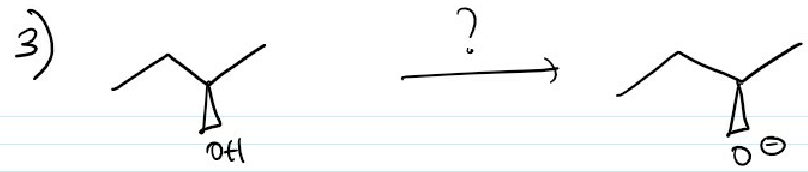 3)
?
OH
O⊖